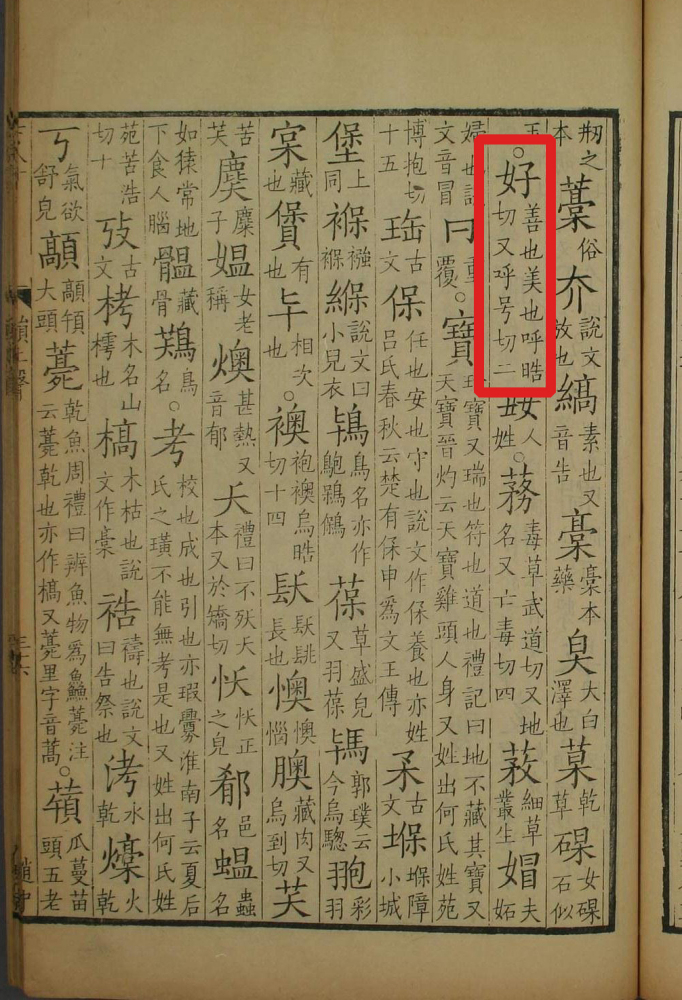 本之藳俗夰說文放也縞素也又音告槀槀本藥臭大白澤也菒乾草女石似
五。好善也美也呼晧切又呼号切二㚥人姓。蓩毒草武道切又地名又亡毒切四䓮細草叢生媢夫妬
婦也說文音冒冃重覆。寶珍寶又瑞也符也道也禮記曰地不藏其寶又天寶晉灼云天寶雞頭人身又姓出何氏姓苑
博抱切十五古文保任也安也守也說文作保養也亦姓呂氏春秋云楚有保申爲文王傅古文堢堢障小城
堡上同褓襁褓緥說文曰小兒衣鴇鳥名亦作葆草盛皃又羽葆郭璞云今烏驄彩羽
寀藏也有也相次也襖袍襖烏晧切十四镺镺長也懊懊惱藏肉又烏到切芺
苦芺麋子媼女老稱燠甚熱又音郁夭禮曰不殀夭本又於矯切㤇㤇正之皃邑名蝹蟲名
如猿常地下食人腦藏骨鳥名。考校也成也引也亦瑕釁淮南子云夏后氏之璜不能無考是也又姓出何氏姓
苑苦浩切十攷古文栲木名山樗也槁木枯也說文作槀祰禱也說文曰告祭也洘水乾燺火乾
丂氣欲舒皃大頭薧乾魚周禮曰辨魚物爲鱻薧注云薧乾也亦作槁又薧里字音蒿。瓜蔓苗頭五老